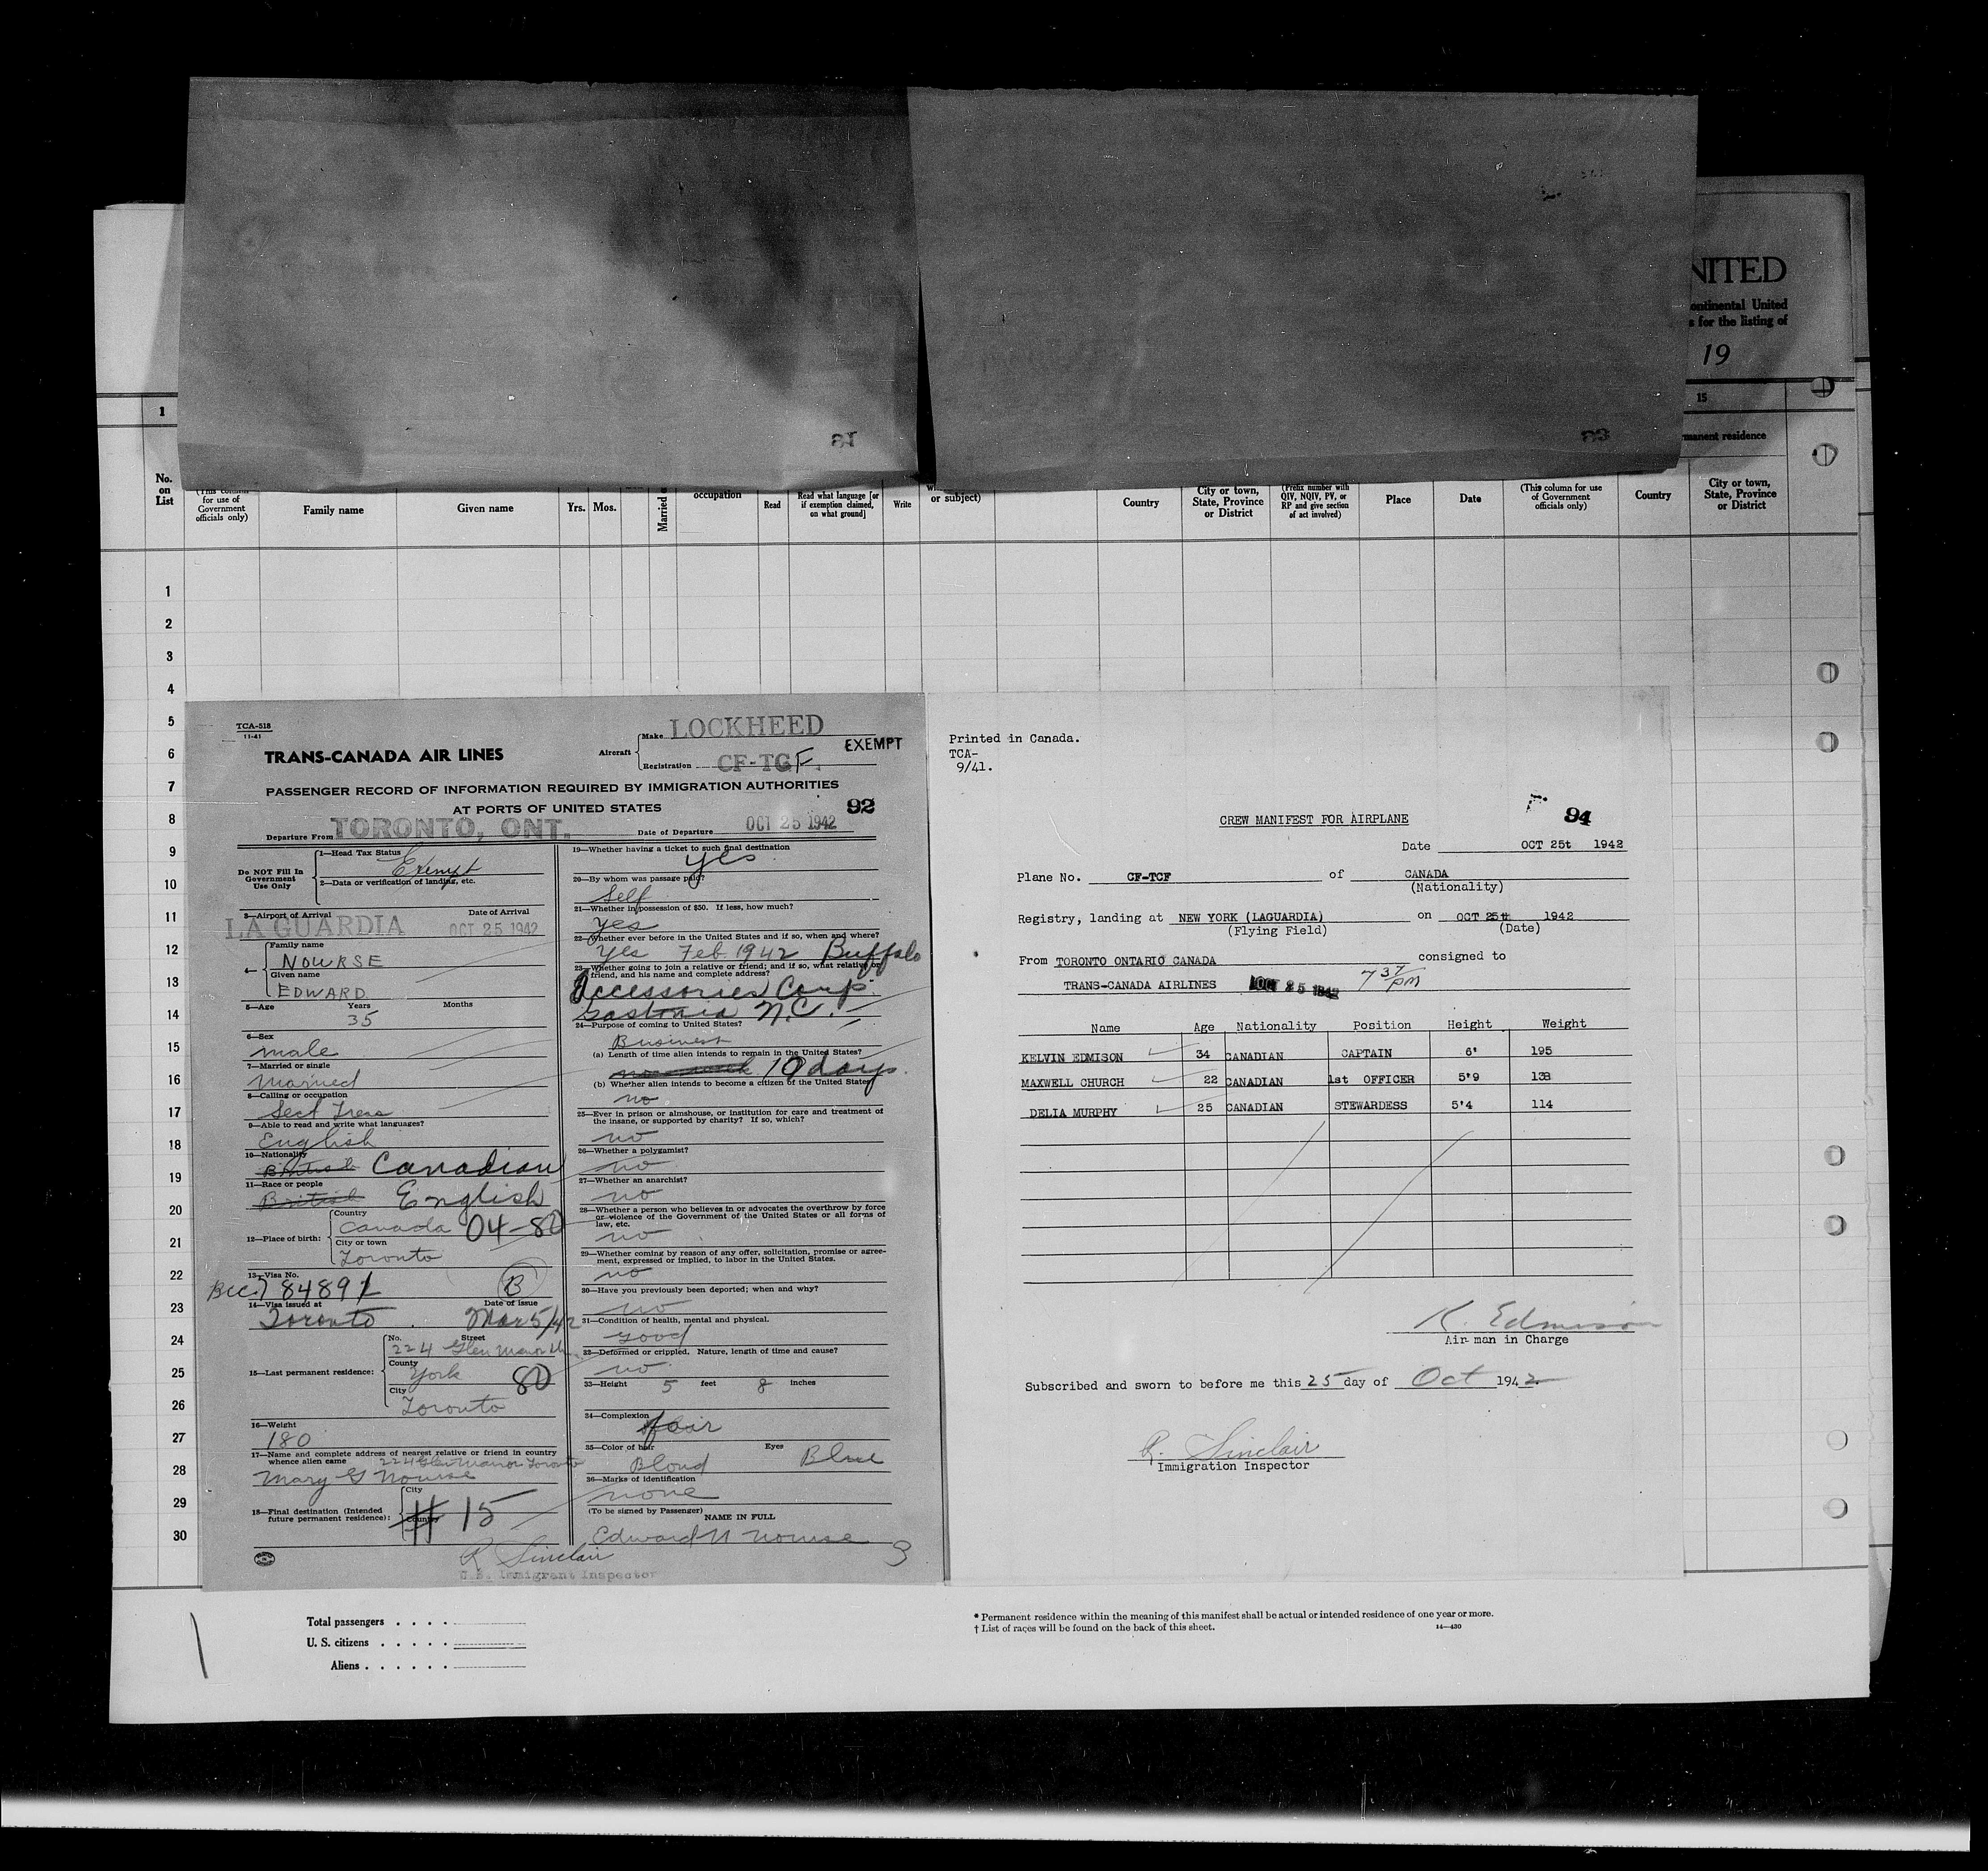 NITED
ontinental United
s for the listing of
19
1
15
manent residence
No. on List
(This column for use of Government officials only)
Family name
Given name
Yrs. Mos.
Married o
occupation
Read
Read what language [or if exemption claimed, on what ground]
Write
or subject)
Country
City or town, State, Province or District
(Prefix number with QIV, NQIV, PV, or RP and give section of act involved)
Place
Date
(This column for use of Government officials only)
Country
City or town, State, Province or District
1
2
3
4
5
6
7
8
9
10
11
12
13
14
15
16
17
18
19
20
21
22
23
24
25
26
27
28
29
30
TCA-518
11-41
TRANS-CANADA AIR LINES
Aircraft
Make LOCKHEED
Registration CF-TCF
EXEMPT
PASSENGER RECORD OF INFORMATION REQUIRED BY IMMIGRATION AUTHORITIES
AT PORTS OF UNITED STATES
92
Departure From TORONTO, ONT.
Date of Departure OCT 25 1942
Do NOT Fill In Government Use Only
1—Head Tax Status
Exempt
2—Data or verification of landing, etc.
3—Airport of Arrival
Date of Arrival
LA GUARDIA OCT 25 1942
4—
Family name
NOURSE
Given name
EDWARD
5—Age Years Months
35
6—Sex
male
7—Married or single
Married
8—Calling or occupation
Sect Treas
9—Able to read and write what languages?
English
10—Nationality
British Canadian
11—Race or people
British English
12—Place of birth:
Country
Canada 04-80
City or town
Toronto
13—Visa No.
BCC 784891 B
14—Visa issued at Date of issue
Toronto Mar 5/42
15—Last permanent residence:
No. Street
224 Glen Manor
County
York 80
City
Toronto
16—Weight
180
17—Name and complete address of nearest relative or friend in country
whence alien came 224 Glen Manor Toronto
Mary G Nourse
18—Final destination (Intended
future permanent residence):
City
Country
# 15
R Sinclair
U.S. Immigrant Inspector
19—Whether having a ticket to such final destination
yes
20—By whom was passage paid?
Self
21—Whether in possession of $50. If less, how much?
Yes
22—Whether ever before in the United States and if so, when and where?
Yes Feb 1942 Buffalo
23—Whether going to join a relative or friend; and if so, what relative or
friend, and his name and complete address?
Accessories Corp.
Gastonia N.C.
24—Purpose of coming to United States?
Business
(a) Length of time alien intends to remain in the United States?
10 days
(b) Whether alien intends to become a citizen of the United States?
no
25—Ever in prison or almshouse, or institution for care and treatment of
the insane, or supported by charity? If so, which?
no
26—Whether a polygamist?
no
27—Whether an anarchist?
no
28—Whether a person who believes in or advocates the overthrow by force
or violence of the Government of the United States or all forms of
law, etc.
no
29—Whether coming by reason of any offer, solicitation, promise or agree-
ment, expressed or implied, to labor in the United States.
no
30—Have you previously been deported; when and why?
no
31—Condition of health, mental and physical.
good
32—Deformed or crippled. Nature, length of time and cause?
no
33—Height 5 feet 8 inches
34—Complexion
fair
35—Color of hair Eyes
Blond Blue
36—Marks of identification
none
(To be signed by Passenger) NAME IN FULL
Edward N Nourse
3
Printed in Canada.
TCA-
9/41.
94
CREW MANIFEST FOR AIRPLANE
Date OCT 25t 1942
Plane No. CF-TCF of CANADA
(Nationality)
Registry, landing at NEW YORK (LAGUARDIA) on OCT 25th 1942
(Flying Field) (Date)
From TORONTO ONTARIO CANADA consigned to
TRANS-CANADA AIRLINES OCT 25 1942 7 37 PM
Name Age Nationality Position Height Weight
KELVIN EDMISON 34 CANADIAN CAPTAIN 6' 195
MAXWELL CHURCH 22 CANADIAN 1st OFFICER 5'9 138
DELIA MURPHY 25 CANADIAN STEWARDESS 5'4 114
K. Edmison
Air man in Charge
Subscribed and sworn to before me this 25 day of Oct 1942
R. Sinclair
Immigration Inspector
Total passengers . . . .
U. S. citizens . . . . .
Aliens . . . . . .
* Permanent residence within the meaning of this manifest shall be actual or intended residence of one year or more.
† List of races will be found on the back of this sheet.
14—430